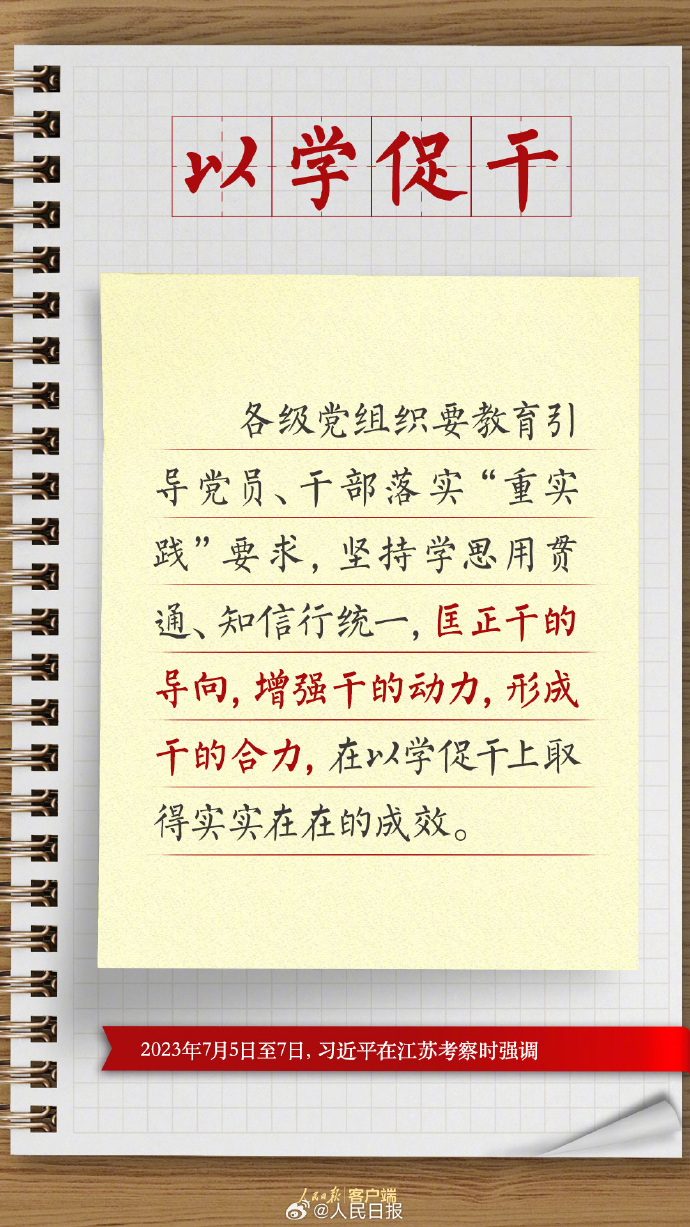 以学促干
各级党组织要教育引
导党员、干部落实“重实
践”要求，坚持学思用贯
通、知信行统一，匡正干的
导向，增强干的动力，形成
干的合力，在以学促干上取
得实实在在的成效。
2023年7月5日至7日，习近平在江苏考察时强调
人民日报 客户端
@人民日报